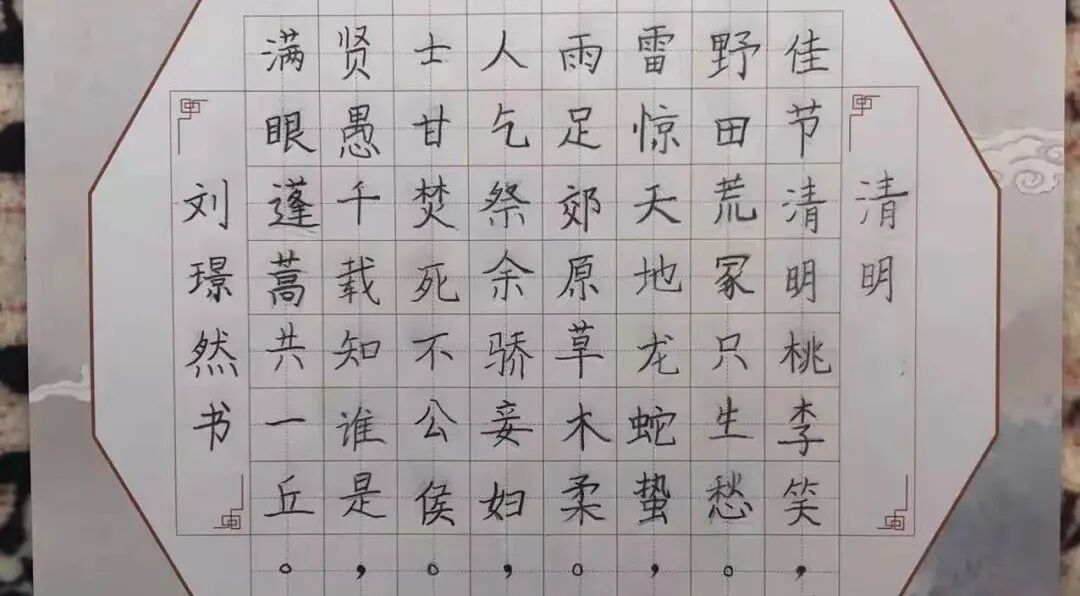 清明
佳节清明桃李笑，
野田荒冢只生愁。
雷惊天地龙蛇蛰，
雨足郊原草木柔。
人乞祭余骄妾妇，
士甘焚死不公侯。
贤愚千载知谁是，
满眼蓬蒿共一丘。
刘璟然书